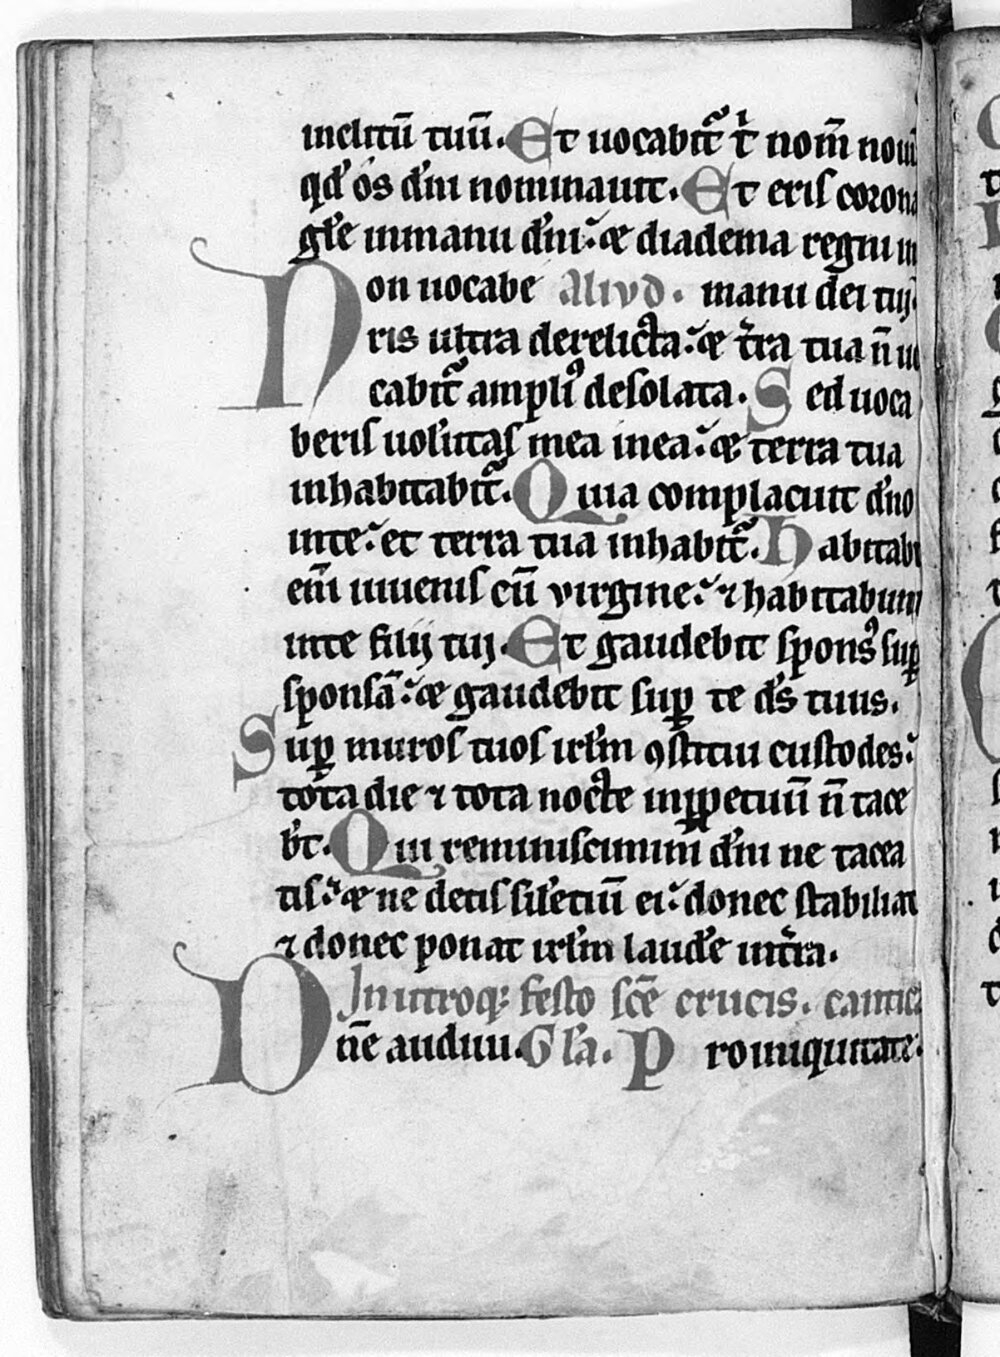 inclitū tuū. Et uocabit᷑ t̓ nom̄ nouū
qd̓ os dn̓i nominauit. Et eris corona
gl̓e inmanu dn̓i: ⁊ diadema regni in
Non uocabe Aliud. manu dei tui.
ris ultra derelicta: ⁊ t̓ra tua n̄ uo
cabit᷑ ampliꝰ desolata. Sed uoca
beris uolūtas mea inea: ⁊ terra tua
inhabitabit᷑. Quia complacuit dn̓o
inte: et terra tua inhabit᷑. Habitabi
em̄ iuuenis cū virgine: ⁊ habitabunt
inte filij tuj. Et gaudebit sponsꝰ suꝑ
sponsā: ⁊ gaudebit suꝑ te ds̓ tuus.
Suꝑ muros tuos irl̓m ꝯstitui custodes:
tota die ⁊ tota nocte inꝑpetuū n̄ tace
bt̓. Qui reminiscimini dn̓i ne tacea
tis: ⁊ ne detis silētiū ei: donec stabiliat
⁊ donec ponat irl̓m laudē int̓ra.
In utroqꝫ festo sc̄e crucis. cantica
Dn̄e audiui. Gl̓a. P ro iniquitate.